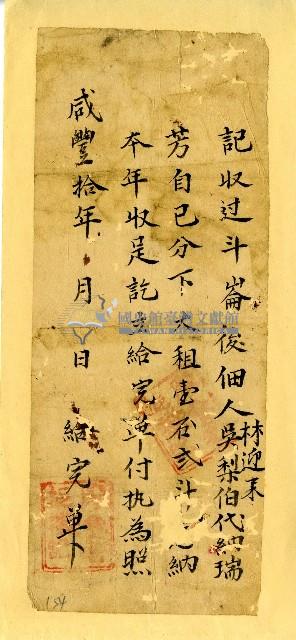 記收过斗崙後佃人吳梨伯代納瑞
林迎來
芳自己分下 租壹石弍斗 納
本年收足訖 給完单付执為照
咸豐拾年 月 日 給完单
國史館臺灣文獻館
154